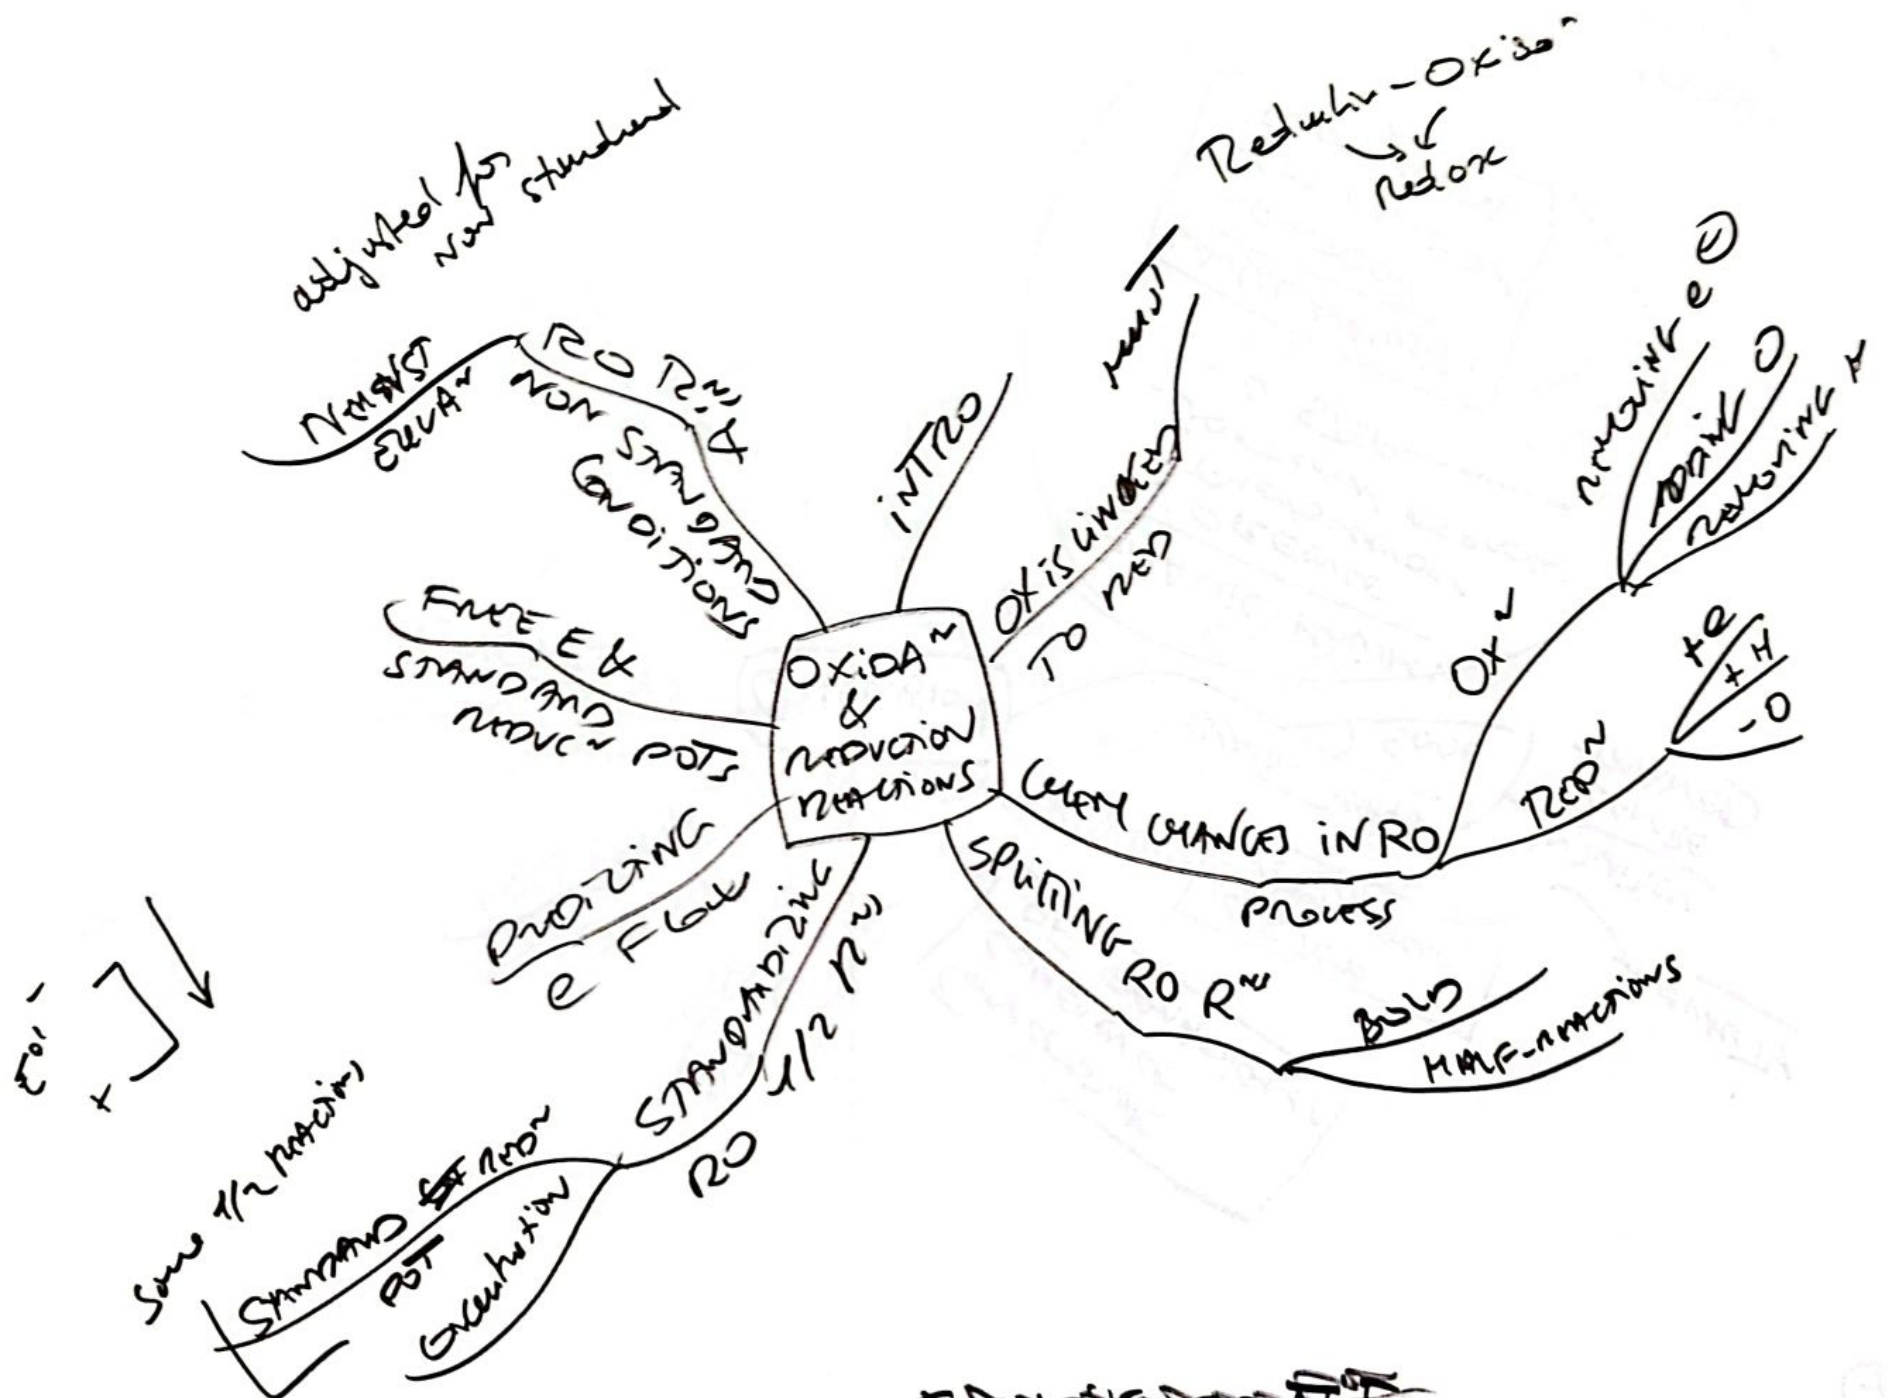 OXIDAⁿ
&
REDUCTION
REACTIONS
INTRO
OX IS LINKED
TO RED
Redox
CHEM CHANGES IN RO
PROCESS
OXⁿ
REMOVING e ⊖
ADDING O
REMOVING H
REDⁿ
+e
+H
-O
SPLITTING RO Rⁿˢ
BOLD
HALF-REACTIONS
STANDARDIZING
1/2 Rⁿˢ
RO
STANDARD REDⁿ
POT
Concentration
Some 1/2 REACTIONS
E°' -
+
PREDIZING
e FLOW
FREE E &
STANDARD
REDUCⁿ POTS
RO Rⁿˢ A
NON STANDARD
CONDITIONS
NERNST
EQUAⁿ
adjusted for
non standard